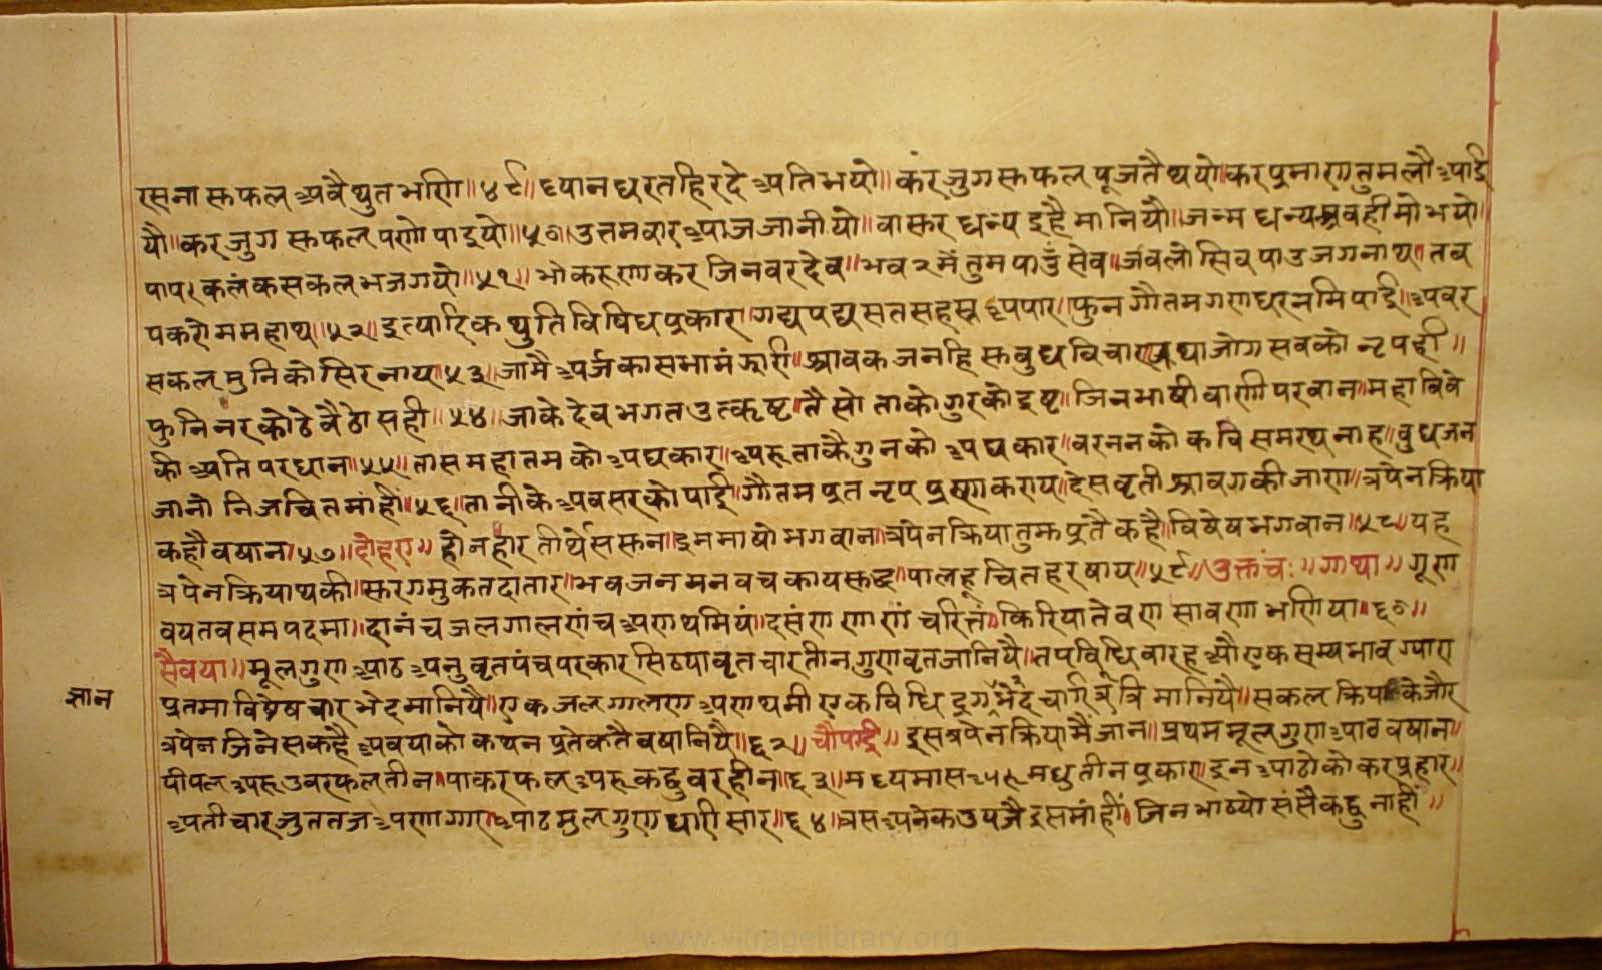 रसना सफल अबै थुत भणी॥४९॥ ध्यान धरत हिरदे अति भयो॥ कर जुग सफल पूजतै थयो॥ कर प्रमाण तुमलौ आई
यौ॥ कर जुग सफल पणो पाइयो॥५०॥ उत्तम वार आज जानीयो॥ वासर धन्य इहै मानियौ॥ जन्म धन्य अबही मो भयो॥
पाप कलंक सकल भज गयो॥५१॥ भो करुणाकर जिनवर देव॥ भव २ मैं तुम पाउं सेव॥ जबलो सिव पाउ जगनाथ॥ तब
पकरो मम हाथ॥५२॥ इत्यादिक थुति विविध प्रकार॥ गद्य पद्य सत सहस्र अपार॥ फुन गौतम गणधर नमि पाई॥ अवर
सकल मुनि को सिरनाय॥५३॥ जामै अर्जका सभा मंझारी॥ श्रावक जनहि सबुध विचार॥ यथा जोग सबको नृप सही॥
फुनि नर कोठे बैठो सही॥५४॥ जाके देव भगत उत्कृष्ट॥ तैसो ताको गुर को इष्ट॥ जिन भाषी वाणी परवान॥ महा विवे
की अति परधान॥५५॥ तास महातम को अधकार॥ अरु ताकै गुन को अधकार॥ वरनन को कवि समरथ नाह॥ बुधजन
जानो निज चित मांही॥५६॥ ता नीके अवसर को पाई॥ गौतम प्रत नृप प्रष्ण कराय॥ देसवृती श्रावग की जाण॥ त्रपेन क्रिया
कहौ वयान॥५७॥ दोहरा॥ होनहार तीर्थेस सुन॥ इम भायो भगवान॥ त्रपेन क्रिया तुझ प्रतै कहै॥ विषेष भगवान॥५८॥ यह
त्रपेन क्रिया थकी॥ सरग मुकत दातार॥ भव जन मन वच काय सुद्ध॥ पालहू चित हरषाय॥५९॥ उक्तंच:॥ गाथा॥ गूण
वय तव सम पदमा॥ दानं च जल गालणं च अणथमियं॥ दसंण णाणं चरित्तं॥ किरिया तेवण सावण भणिया॥६०॥
सैवया॥ मूलगुण आठ अनुवृत पंच परकार सिठयावृत चार तीन गुणवृत जानियै॥ तप विधि बारह औ एक सम्यभाव ग्यारा
ज्ञान
प्रतमा विषेष चार भेद मानियै॥ एक जल गालण अणथमी एक विधि द्रग भेद चारित्र त्रि मानियै॥ सकल क्रिया के जौर
त्रपेन जिनेस कहै अब याको कथन प्रतेकतै वयानियै॥६२॥ चौपई॥ इस त्रपेन क्रिया मैं जान॥ प्रथम मूलगुण आठ वयान॥
पीपल अरु उवर फल तीन॥ पाकर फल अरु कठुवर हीन॥६३॥ मद्य मास अरु मधु तीन प्रकार॥ इन आठो को कर प्रहार॥
अतीचार जुत तज अणगार॥ आठ मुलगुण धारी सार॥६४॥ त्रस अनेक उपजै इस मांहीं॥ जिन भाष्यो संसै कछु नाहीं॥
www.vitragelibrary.org